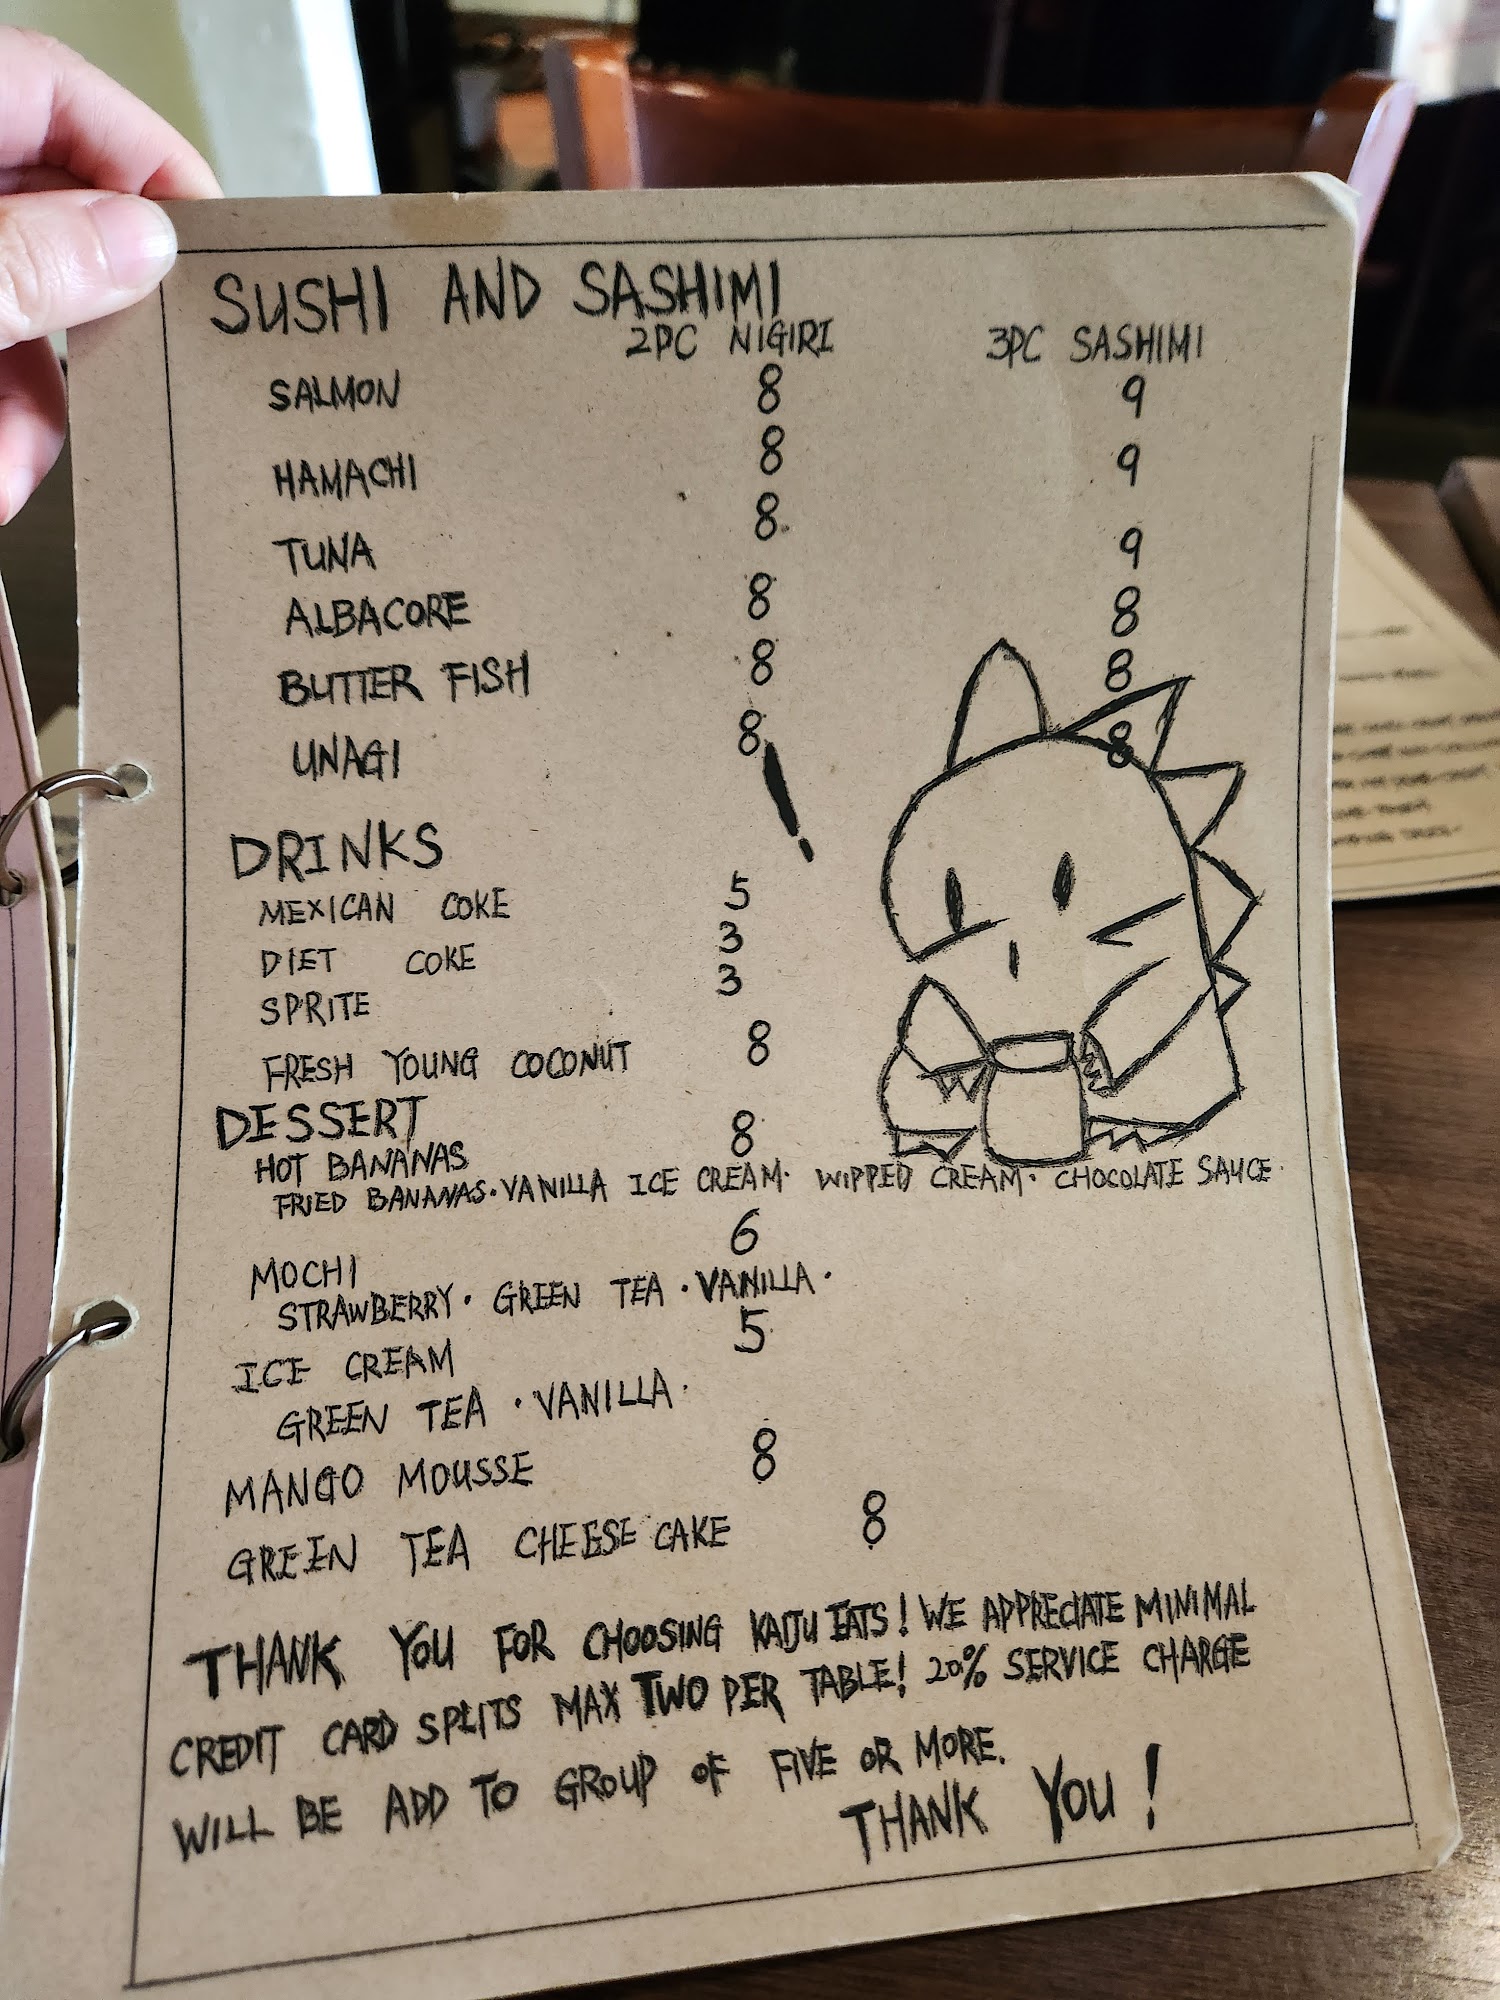 SUSHI AND SASHIMI
2PC NIGIRI 3PC SASHIMI
SALMON 8 9
HAMACHI 8 9
TUNA 8 9
ALBACORE 8 8
BUTTER FISH 8 8
UNAGI 8 8
DRINKS
MEXICAN COKE 5
DIET COKE 3
SPRITE 3
FRESH YOUNG COCONUT 8
DESSERT
HOT BANANAS 8
FRIED BANANAS · VANILLA ICE CREAM · WIPPED CREAM · CHOCOLATE SAUCE ·
MOCHI 6
STRAWBERRY · GREEN TEA · VANILLA ·
ICE CREAM 5
GREEN TEA · VANILLA ·
MANGO MOUSSE 8
GREEN TEA CHEESE CAKE 8
THANK YOU FOR CHOOSING KAIJU EATS! WE APPRECIATE MINIMAL
CREDIT CARD SPLITS MAX TWO PER TABLE! 20% SERVICE CHARGE
WILL BE ADD TO GROUP OF FIVE OR MORE.
THANK YOU!